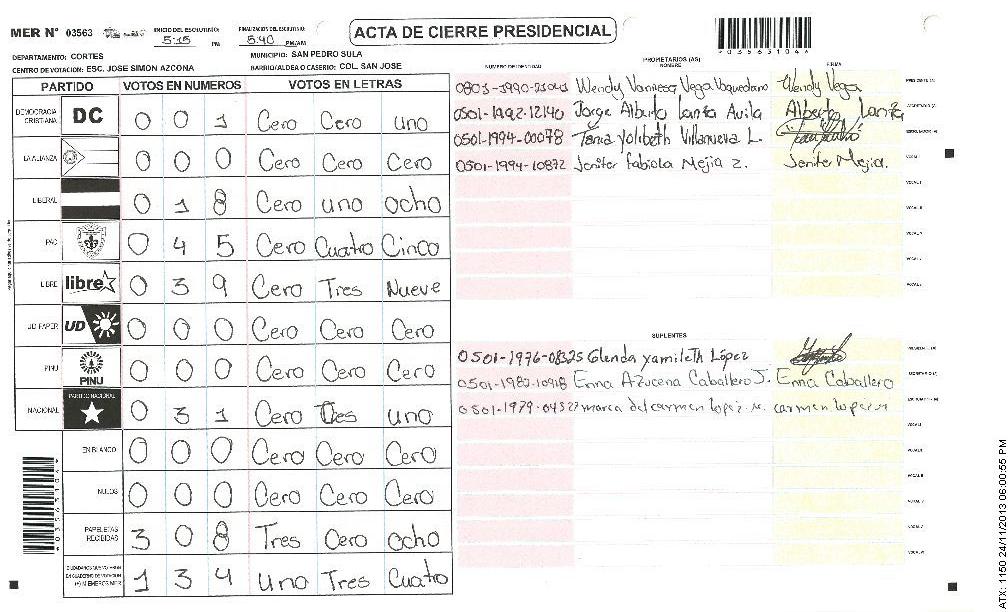 MER Nº 03563
INICIO DEL ESCRUTINIO: 5:15 PM
FINALIZACIÓN DEL ESCRUTINIO: 5:40 PM/AM
ACTA DE CIERRE PRESIDENCIAL
DEPARTAMENTO: CORTES
MUNICIPIO: SAN PEDRO SULA
CENTRO DE VOTACION: ESC. JOSE SIMON AZCONA
BARRIO/ALDEA O CASERIO: COL. SAN JOSE
PARTIDO VOTOS EN NUMEROS VOTOS EN LETRAS
DEMOCRACIA CRISTIANA DC 0 0 1 Cero Cero uno
LA ALIANZA 0 0 0 Cero Cero Cero
LIBERAL 0 1 8 Cero uno ocho
PAC 0 4 5 Cero Cuatro Cinco
LIBRE libre 0 3 9 Cero Tres Nueve
UD FAPER UD 0 0 0 Cero Cero Cero
PINU PINU 0 0 0 Cero Cero Cero
NACIONAL PARTIDO NACIONAL 0 3 1 Cero Tres uno
EN BLANCO 0 0 0 Cero Cero Cero
NULOS 0 0 0 Cero Cero Cero
PAPELETAS RECIBIDAS 3 0 8 Tres Cero ocho
CIUDADANOS QUE VOTARON EN CUADERNO DE VOTACION (+) MIEMBROS MER 1 3 4 Uno Tres Cuatro
0 3 5 6 3 1 0 4
NUMERO DE IDENTIDAD PROPIETARIOS (AS) NOMBRE FIRMA
Wendy Vannessa Vega Vaquedano Wendy Vega
0501-1992-12140 Jorge Alberto Lanza Avila Alberto Lanza
0501-1994-00078 Tania Yolibeth Villanueva L.
0501-1994-10872 Jenifer Fabiola Mejia z. Jenifer Mejia.
VOCAL I
VOCAL II
VOCAL III
VOCAL IV
VOCAL V
SUPLENTES
0501-1976-08325 Glenda Yamileth López
Enma Azucena Caballero J. Enma Caballero
maria del carmen lopez m. carmen lopez m
ATX: 1150 24/11/2013 06:00:55 PM